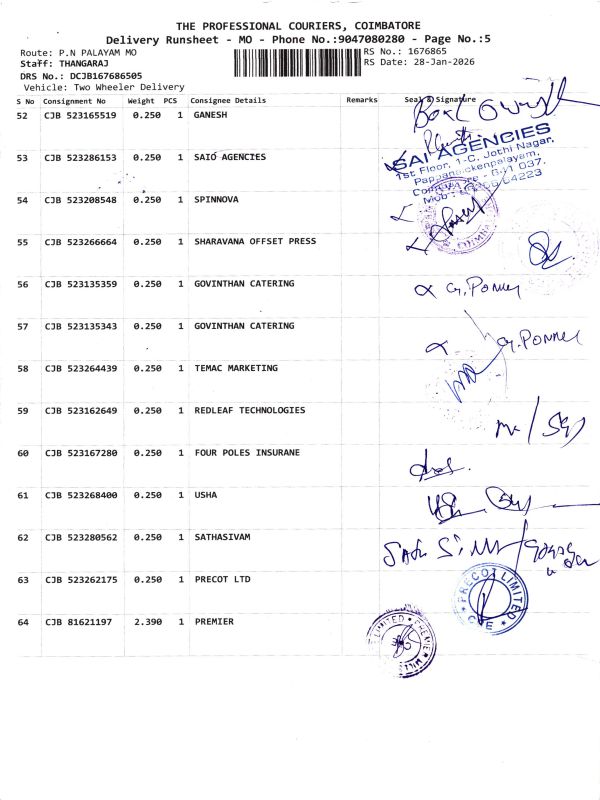 THE PROFESSIONAL COURIERS, COIMBATORE
Delivery Runsheet - MO - Phone No.:9047080280 - Page No.:5
Route: P.N PALAYAM MO RS No.: 1676865
Staff: THANGARAJ RS Date: 28-Jan-2026
DRS No.: DCJB167686505
Vehicle: Two Wheeler Delivery
S No Consignment No Weight PCS Consignee Details Remarks Seal & Signature
52 CJB 523165519 0.250 1 GANESH
53 CJB 523286153 0.250 1 SAID AGENCIES
SAI AGENCIES
1st Floor, 1-C, Jothi Nagar,
Pappanaickenpalayam,
54 CJB 523208548 0.250 1 SPINNOVA
55 CJB 523266664 0.250 1 SHARAVANA OFFSET PRESS
56 CJB 523135359 0.250 1 GOVINTHAN CATERING
57 CJB 523135343 0.250 1 GOVINTHAN CATERING
58 CJB 523264439 0.250 1 TEMAC MARKETING
59 CJB 523162649 0.250 1 REDLEAF TECHNOLOGIES
60 CJB 523167280 0.250 1 FOUR POLES INSURANE
61 CJB 523268400 0.250 1 USHA
62 CJB 523280562 0.250 1 SATHASIVAM
63 CJB 523262175 0.250 1 PRECOT LTD
PRECOT LIMITED
64 CJB 81621197 2.390 1 PREMIER